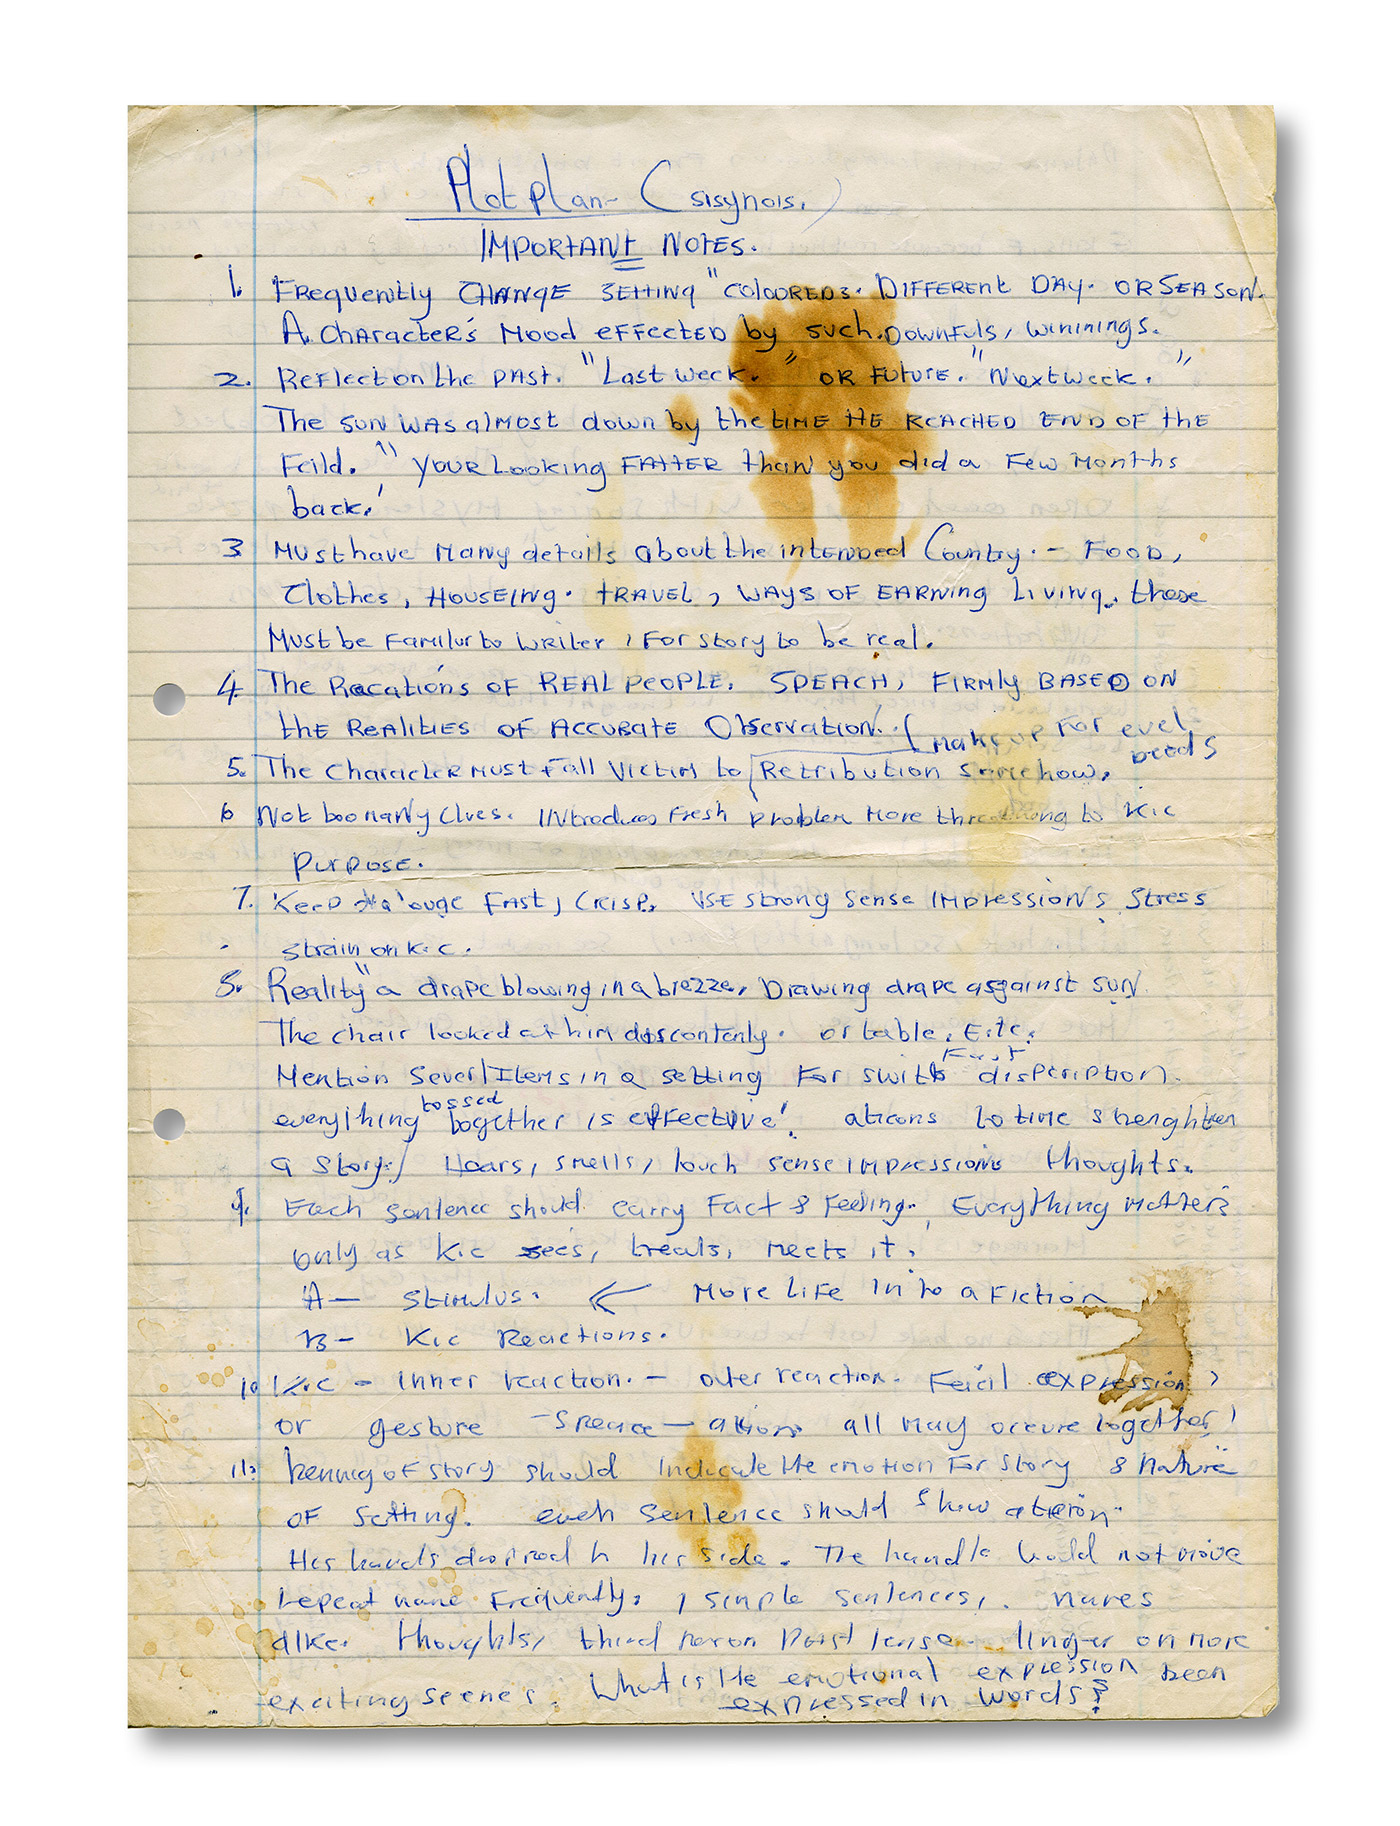 Plot plan - (sisynois.)
IMPORTANT NOTES.
1. FREquently CHANGE SETTING "COLOUREDS. DIFFERENT DAY. OR SEASON.
A. CHARACTER'S MOOD EFFECTED by such. DOWNFULS, WININGS.
2. REFLECT on the PAST. "Last week." OR FUTURE. "Next week."
The SUN WAS alMOST down by the tIME HE REACHED END OF the
Feild." YOUR Looking FATTER than you did a FEW MONTHS
back.'
3 Must have Many details about the intended Country. - FOOD,
Clothes, HOUSEING. TRAVEL, WAYS OF EARNING Living. these
Must be FAMILUR to WRITER, FOR story to be real.
4. The Racations OF REAL PEOPLE. SPEACH, FIRMLY BASED ON
the REALITIES OF ACCURATE Observation. (Make up For evel
deeds
5. The CHARACTER MUST Fall VICTIM to Retribution somehow.
6 Not too many Clues. INtroduce Fresh problem More to Kic
PURPOSE.
7. KEEP FAST, CRISP. USE strong sense IMPRESSIONS. Stress
strain on K.c.
8. Reality" a drape blowing in a brezze, Drawing drape asgainst sun.
The chair looked at him discontenly. or table. E.tc.
Fast
Mention severl Items in a setting For swith discription.
tossed
everything together is effective! aticons to time strenghten
a story. Hears, smells, touch sense IMPRESSIONS thoughts.
9. Each sentence should carry Fact & Feeling. Everything matters
only as Kic sees, treats, meets it.
A - Stimulus. ← More LIFE in to a FICTION
B - Kic Reactions.
10 K.c - INNER reaction. - outer reaction. expression,
or gesture - - all may occure together!
11. of story should indicate the emotion For story & nature
OF setting. each sentence should show
His hands dropped to his side. The handle would not move
repeat name Frequently. simple sentences,.
alike. thoughts, third person past tense - linger on more
exciting scenes. What is the emotional expression been
expressed in words?